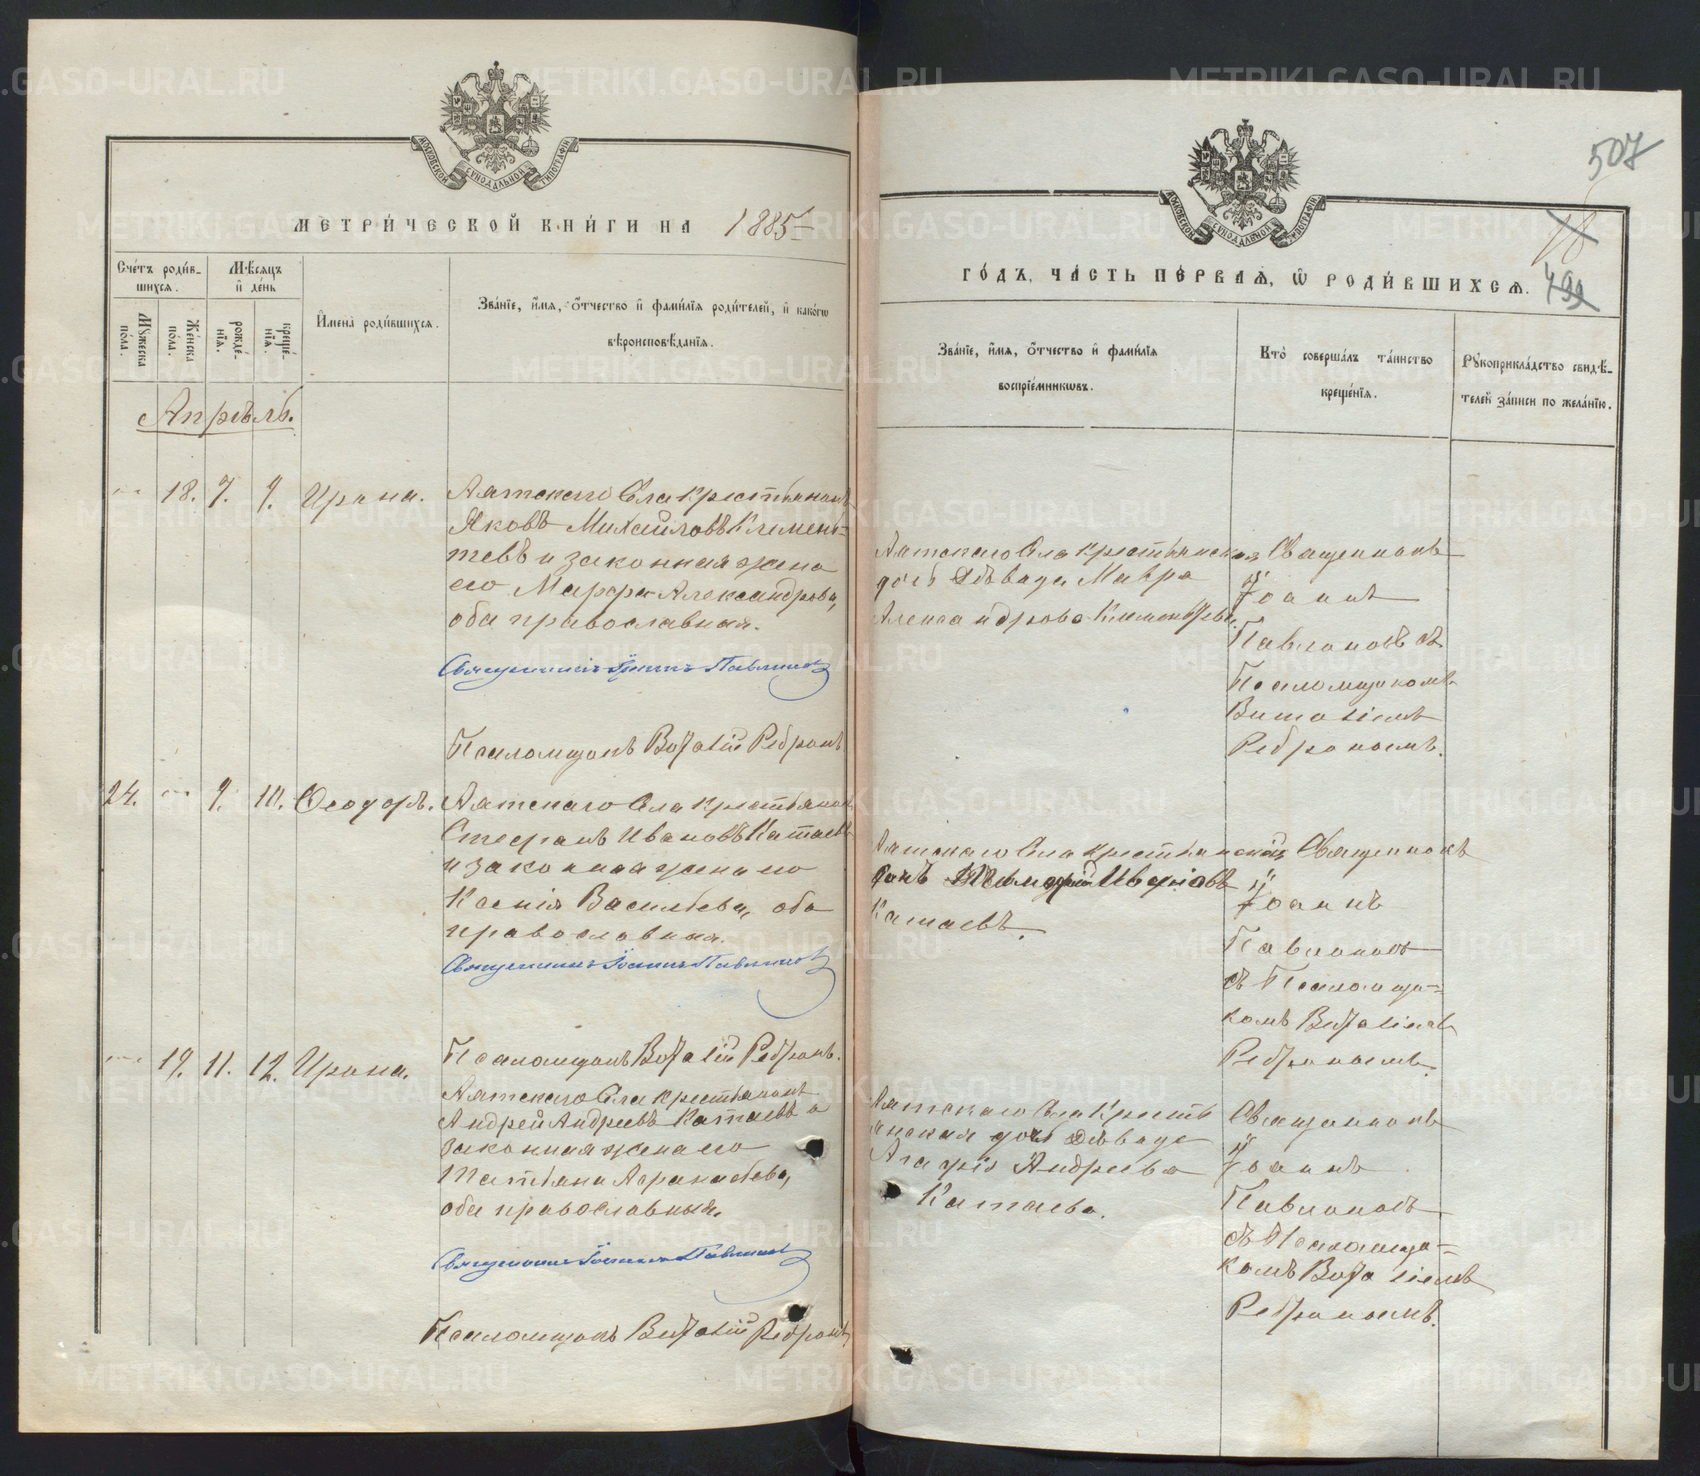 МЕТРИ́ЧЕСКОЙ КНИ́ГИ НА 1885
Сче́тъ роди́в-
шихся.
Мѣ́сяцъ
и҆ де́нь
Мꙋ́жеска
по́ла.
Же́нска
по́ла.
рожде́-
нїѧ.
креще́-
нїѧ.
И҆мена̀ роди́вшихсѧ.
Зва́нїе, и҆́мѧ, ѻ҆́тчество и҆ фами́лїѧ роди́телей, и҆ како́гѡ
вѣроисповѣ́данїѧ.
Апрѣль.
18. 7. 9. Ирина.
Аятскаго Села Крестьянинъ
Яковъ Михайловъ Клемен-
тьевъ и законная жена
его Марфа Александрова,
оба православная.
Священникъ Іоаннъ Павлиновъ
Псаломщикъ Виталій Ребринъ
24. 9. 10. Ѳеодоръ.
Аятскаго Села Крестьянинъ
Стефанъ Ивановъ Катаевъ
и законная жена его
Ксенія Васильева, оба
православная.
Священникъ Іоаннъ Павлиновъ
Псаломщикъ Виталій Ребринъ.
19. 11. 12. Ирина.
Аятскаго Села Крестьянинъ
Андрей Андреевъ Катаевъ и
законная жена его
Татьяна Афанасьева,
оба православныя.
Священникъ Іоаннъ Павлиновъ
Псаломщикъ Виталій Ребринъ
507
18
499
ГО́ДЪ, ЧА́СТЬ ПЕ́РВАѦ, Ѡ҆ РОДИ́ВШИХСѦ.
Зва́нїе, и҆́мѧ, ѻ҆́тчество и҆ фами́лїѧ
воспрїе́мникѡвъ.
Кто̀ соверша́лъ та́инство
креще́нїѧ.
Рꙋкоприкла́дство свидѣ́-
телей за́писи по жела́нїю.
Аятскаго Села Крестьянская
дочь Дѣвица Мавра
Александрова Клементьева.
Священникъ
Іоаннъ
Павлиновъ съ
Псаломщикомъ
Виталіемъ
Ребринымъ.
Аятскаго Села Крестьянскій
сынъ Ивановъ
Катаевъ.
Священникъ
Іоаннъ
Павлиновъ
съ Псаломщи-
комъ Виталіемъ
Ребринымъ.
Аятскаго Села Кресть
янская дочь Дѣвица
Агафія Андреева
Катаева.
Священникъ
Іоаннъ
Павлиновъ
съ Псаломщи-
комъ Виталіемъ
Ребринымъ.
METRIKI.GASO-URAL.RU